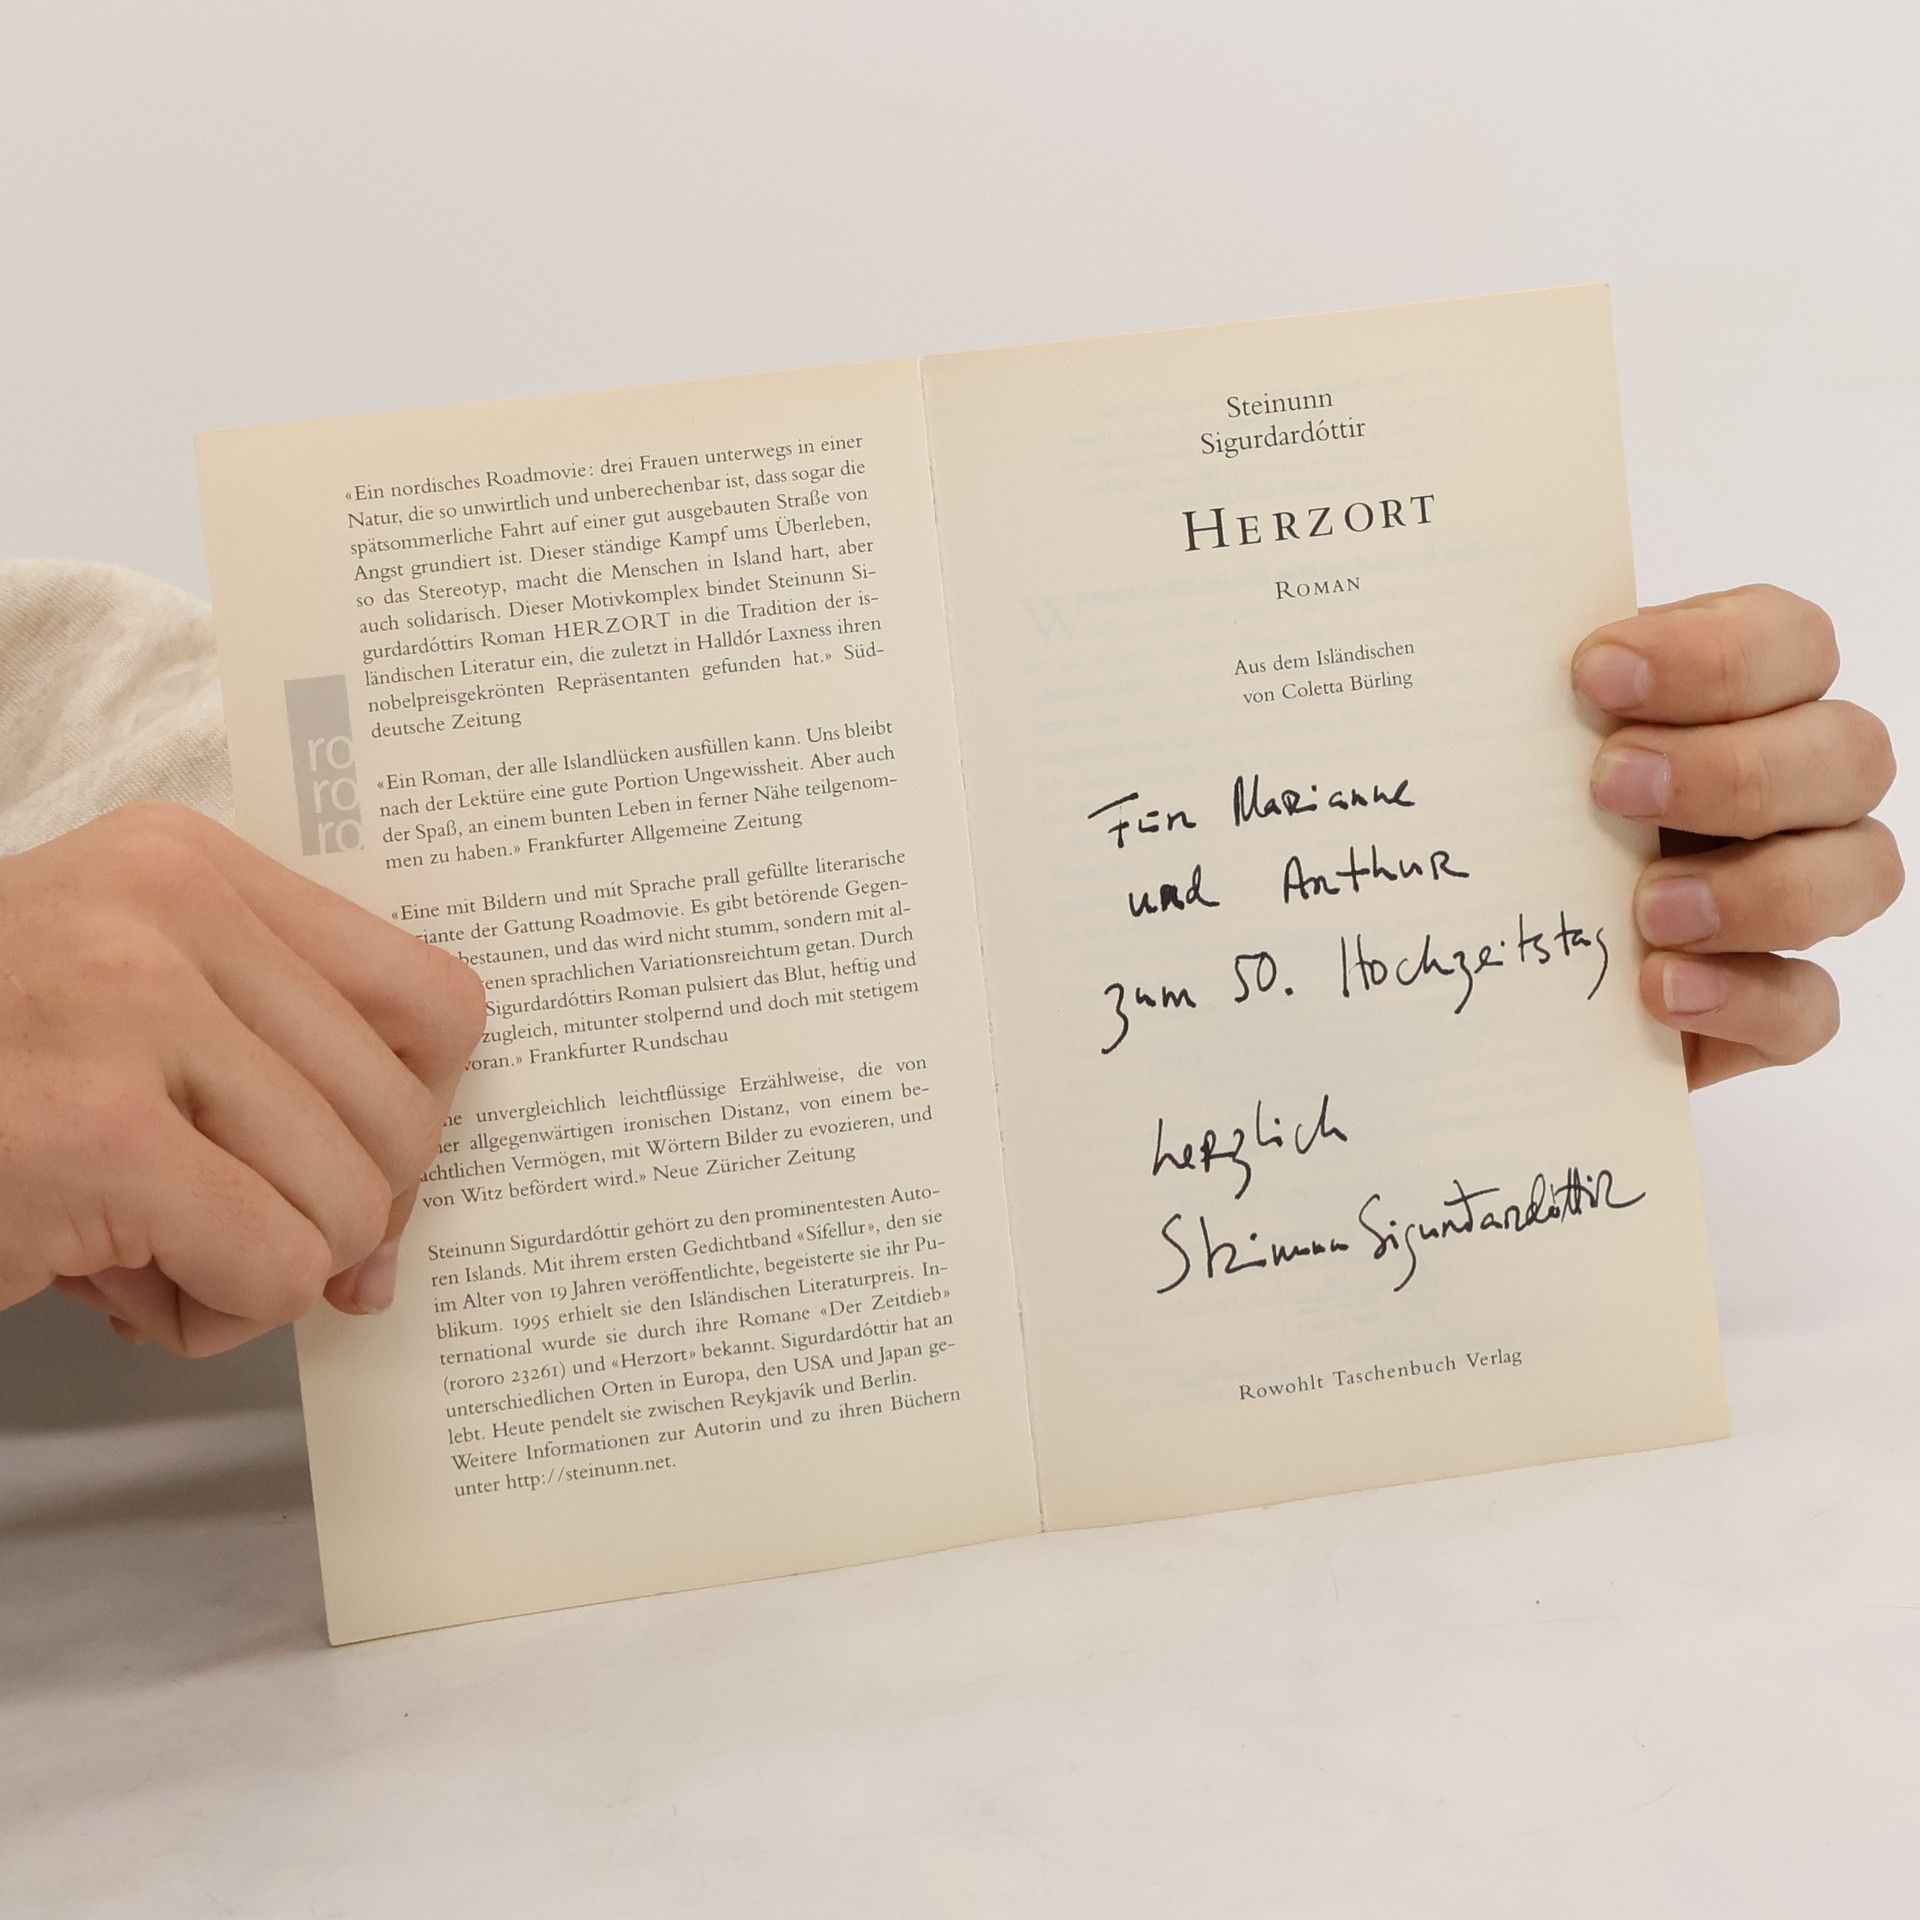 «Ein nordisches Roadmovie: drei Frauen unterwegs in einer
Natur, die so unwirtlich und unberechenbar ist, dass sogar die
spätsommerliche Fahrt auf einer gut ausgebauten Straße von
Angst grundiert ist. Dieser ständige Kampf ums Überleben,
so das Stereotyp, macht die Menschen in Island hart, aber
auch solidarisch. Dieser Motivkomplex bindet Steinunn Si-
gurdardóttirs Roman HERZORT in die Tradition der is-
ländischen Literatur ein, die zuletzt in Halldór Laxness ihren
nobelpreisgekrönten Repräsentanten gefunden hat.» Süd-
deutsche Zeitung
ro
ro
ro
«Ein Roman, der alle Islandlücken ausfüllen kann. Uns bleibt
nach der Lektüre eine gute Portion Ungewissheit. Aber auch
der Spaß, an einem bunten Leben in ferner Nähe teilgenom-
men zu haben.» Frankfurter Allgemeine Zeitung
«Eine mit Bildern und mit Sprache prall gefüllte literarische
riante der Gattung Roadmovie. Es gibt betörende Gegen-
bestaunen, und das wird nicht stumm, sondern mit al-
enen sprachlichen Variationsreichtum getan. Durch
Sigurdardóttirs Roman pulsiert das Blut, heftig und
zugleich, mitunter stolpernd und doch mit stetigem
voran.» Frankfurter Rundschau
ne unvergleichlich leichtflüssige Erzählweise, die von
ner allgegenwärtigen ironischen Distanz, von einem be-
achtlichen Vermögen, mit Wörtern Bilder zu evozieren, und
von Witz befördert wird.» Neue Züricher Zeitung
Steinunn Sigurdardóttir gehört zu den prominentesten Auto-
ren Islands. Mit ihrem ersten Gedichtband «Sífellur», den sie
im Alter von 19 Jahren veröffentlichte, begeisterte sie ihr Pu-
blikum. 1995 erhielt sie den Isländischen Literaturpreis. In-
ternational wurde sie durch ihre Romane «Der Zeitdieb»
(rororo 23261) und «Herzort» bekannt. Sigurdardóttir hat an
unterschiedlichen Orten in Europa, den USA und Japan ge-
lebt. Heute pendelt sie zwischen Reykjavík und Berlin.
Weitere Informationen zur Autorin und zu ihren Büchern
unter http://steinunn.net.
Steinunn
Sigurdardóttir
HERZORT
ROMAN
Aus dem Isländischen
von Coletta Bürling
Für Marianne
und Arthur
zum 50. Hochzeitstag
herzlich
Steinunn Sigurdardóttir
Rowohlt Taschenbuch Verlag